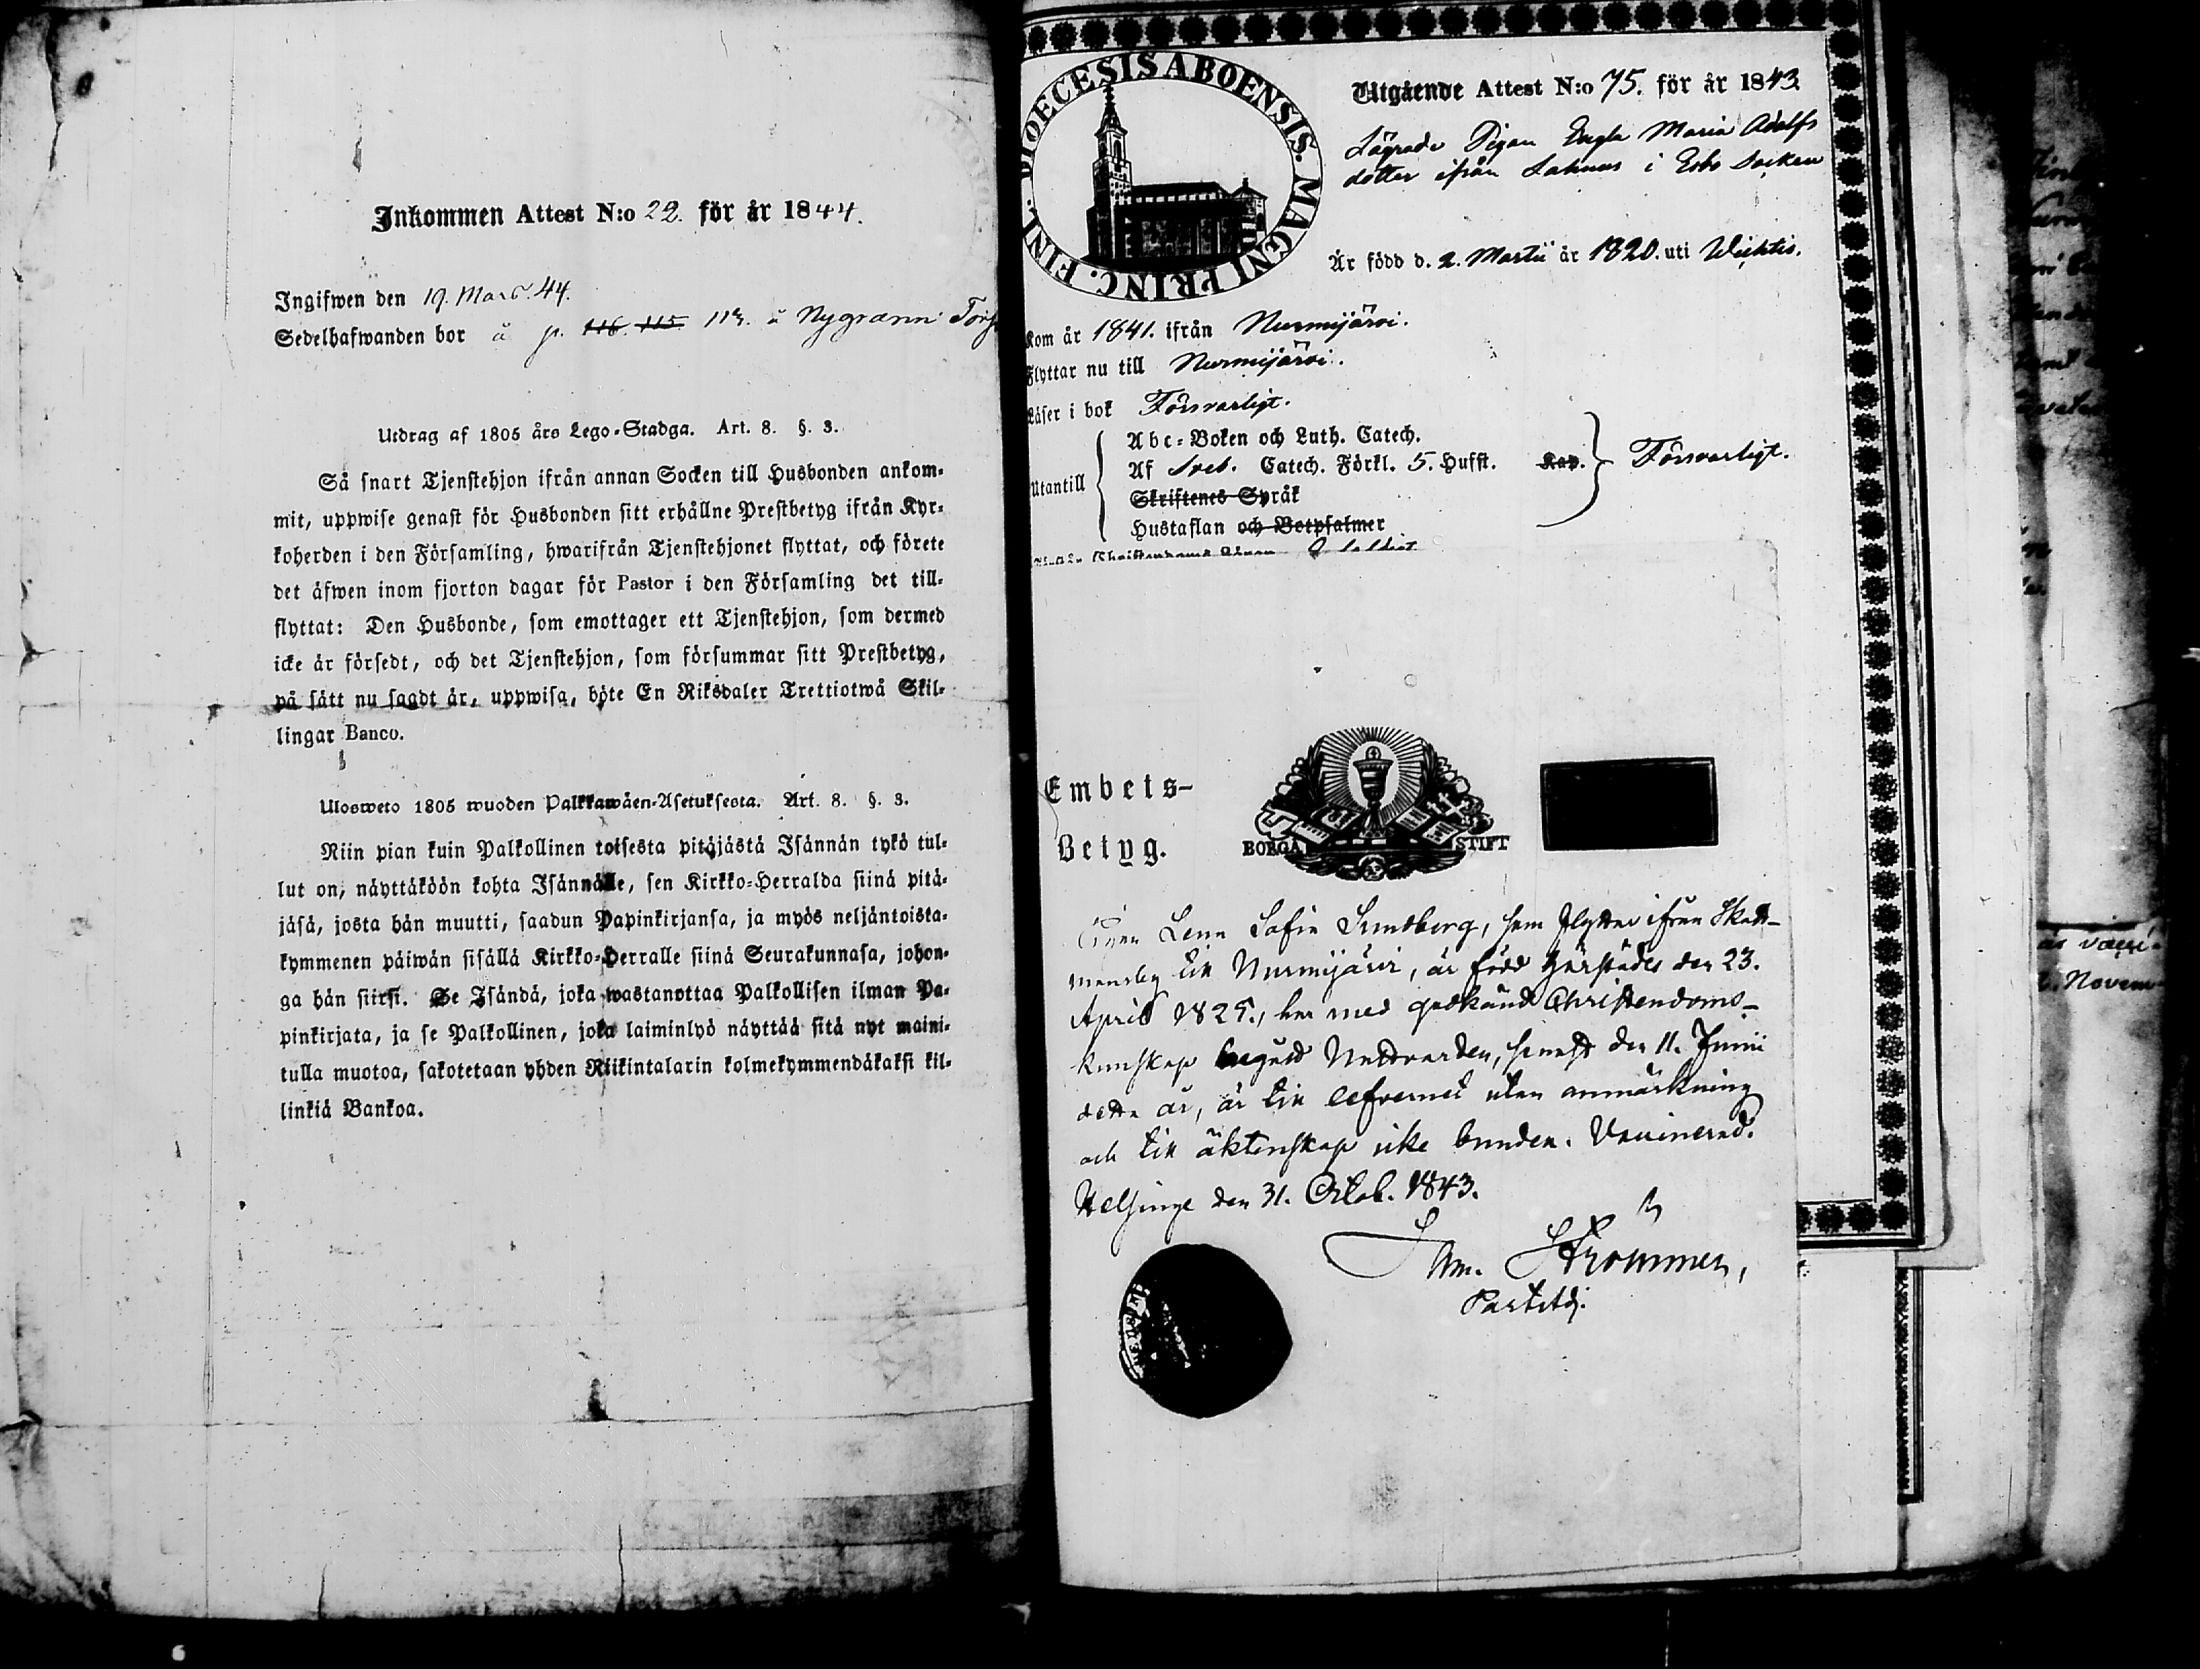 Inkommen Attest N:o 22. för år 1844.
Ingifwen den 19. Mars. 44.
Sedelhafwanden bor å p. 116. 115. 113. å Nygrann Torp
Utdrag af 1805 års Lego-Stadga. Art. 8. §. 3.
Så snart Tjenstehjon ifrån annan Socken till Husbonden ankom-
mit, uppwise genast för Husbonden sitt erhållne Prestbetyg ifrån Kyr-
koherden i den Församling, hwarifrån Tjenstehjonet flyttat, och förete
det äfwen inom fjorton dagar för Pastor i den Församling det till-
flyttat: Den Husbonde, som emottager ett Tjenstehjon, som dermed
icke är försedt, och det Tjenstehjon, som försummar sitt Prestbetyg,
på sätt nu sagdt är, uppwisa, böte En Riksdaler Trettiotwå Skil-
lingar Banco.
Ulosweto 1805 wuoden Palkkawäen-Asetuksesta. Art. 8. §. 3.
Niin pian kuin Palkollinen toisesta pitäjästä Isännän tykö tul-
lut on, näyttäköön kohta Isännälle, sen Kirkko-Herralda siinä pitä-
jäsä, josta hän muutti, saadun Papinkirjansa, ja myös neljäntoista-
kymmenen päiwän sisällä Kirkko-Herralle siinä Seurakunnasa, johon-
ga hän siirsi. Se Isändä, joka wastanottaa Palkollisen ilman Pa-
pinkirjata, ja se Palkollinen, joka laiminlyö näyttää sitä nyt maini-
tulla muotoa, sakotetaan yhden Riikintalarin kolmekymmendäkaksi kil-
linkiä Bankoa.
DIOECESIS ABOENSIS. MAGNI PRINC. FINL.
Utgående Attest N:o 75. för år 1843.
Lägrade Pigan Engla Maria Adolfs
dotter ifrån Lahnus i Esbo Socken
Är född d. 2. Martii år 1820. uti Wichtis.
Kom år 1841. ifrån Nurmijärvi.
Flyttar nu till Nurmijärvi.
Läser i bok Försvarligt.
Utantill
Abc-Boken och Luth. Catech.
Af Sveb. Catech. Förkl. 5. Hufst. Kap. Försvarligt.
Skriftenes Språk
Hustaflan och Botpsalmer
Embets-
Betyg.
BORGÅ STIFT
Pigan Lena Sofia Sundberg, som flyttar ifrån Skatt-
mansby till Nurmijärvi, är född härstädes den 23.
April 1825., har med godkänd Christendoms-
kunskap begådt Nattvarden, senast den 11. Junii
detta år, är till lefvernet utan anmärkning
och till äktenskap icke bunden. Vaccinerad.
Helsinge den 31. Octob. 1843.
Strömmer,
år vacci-
Novem-